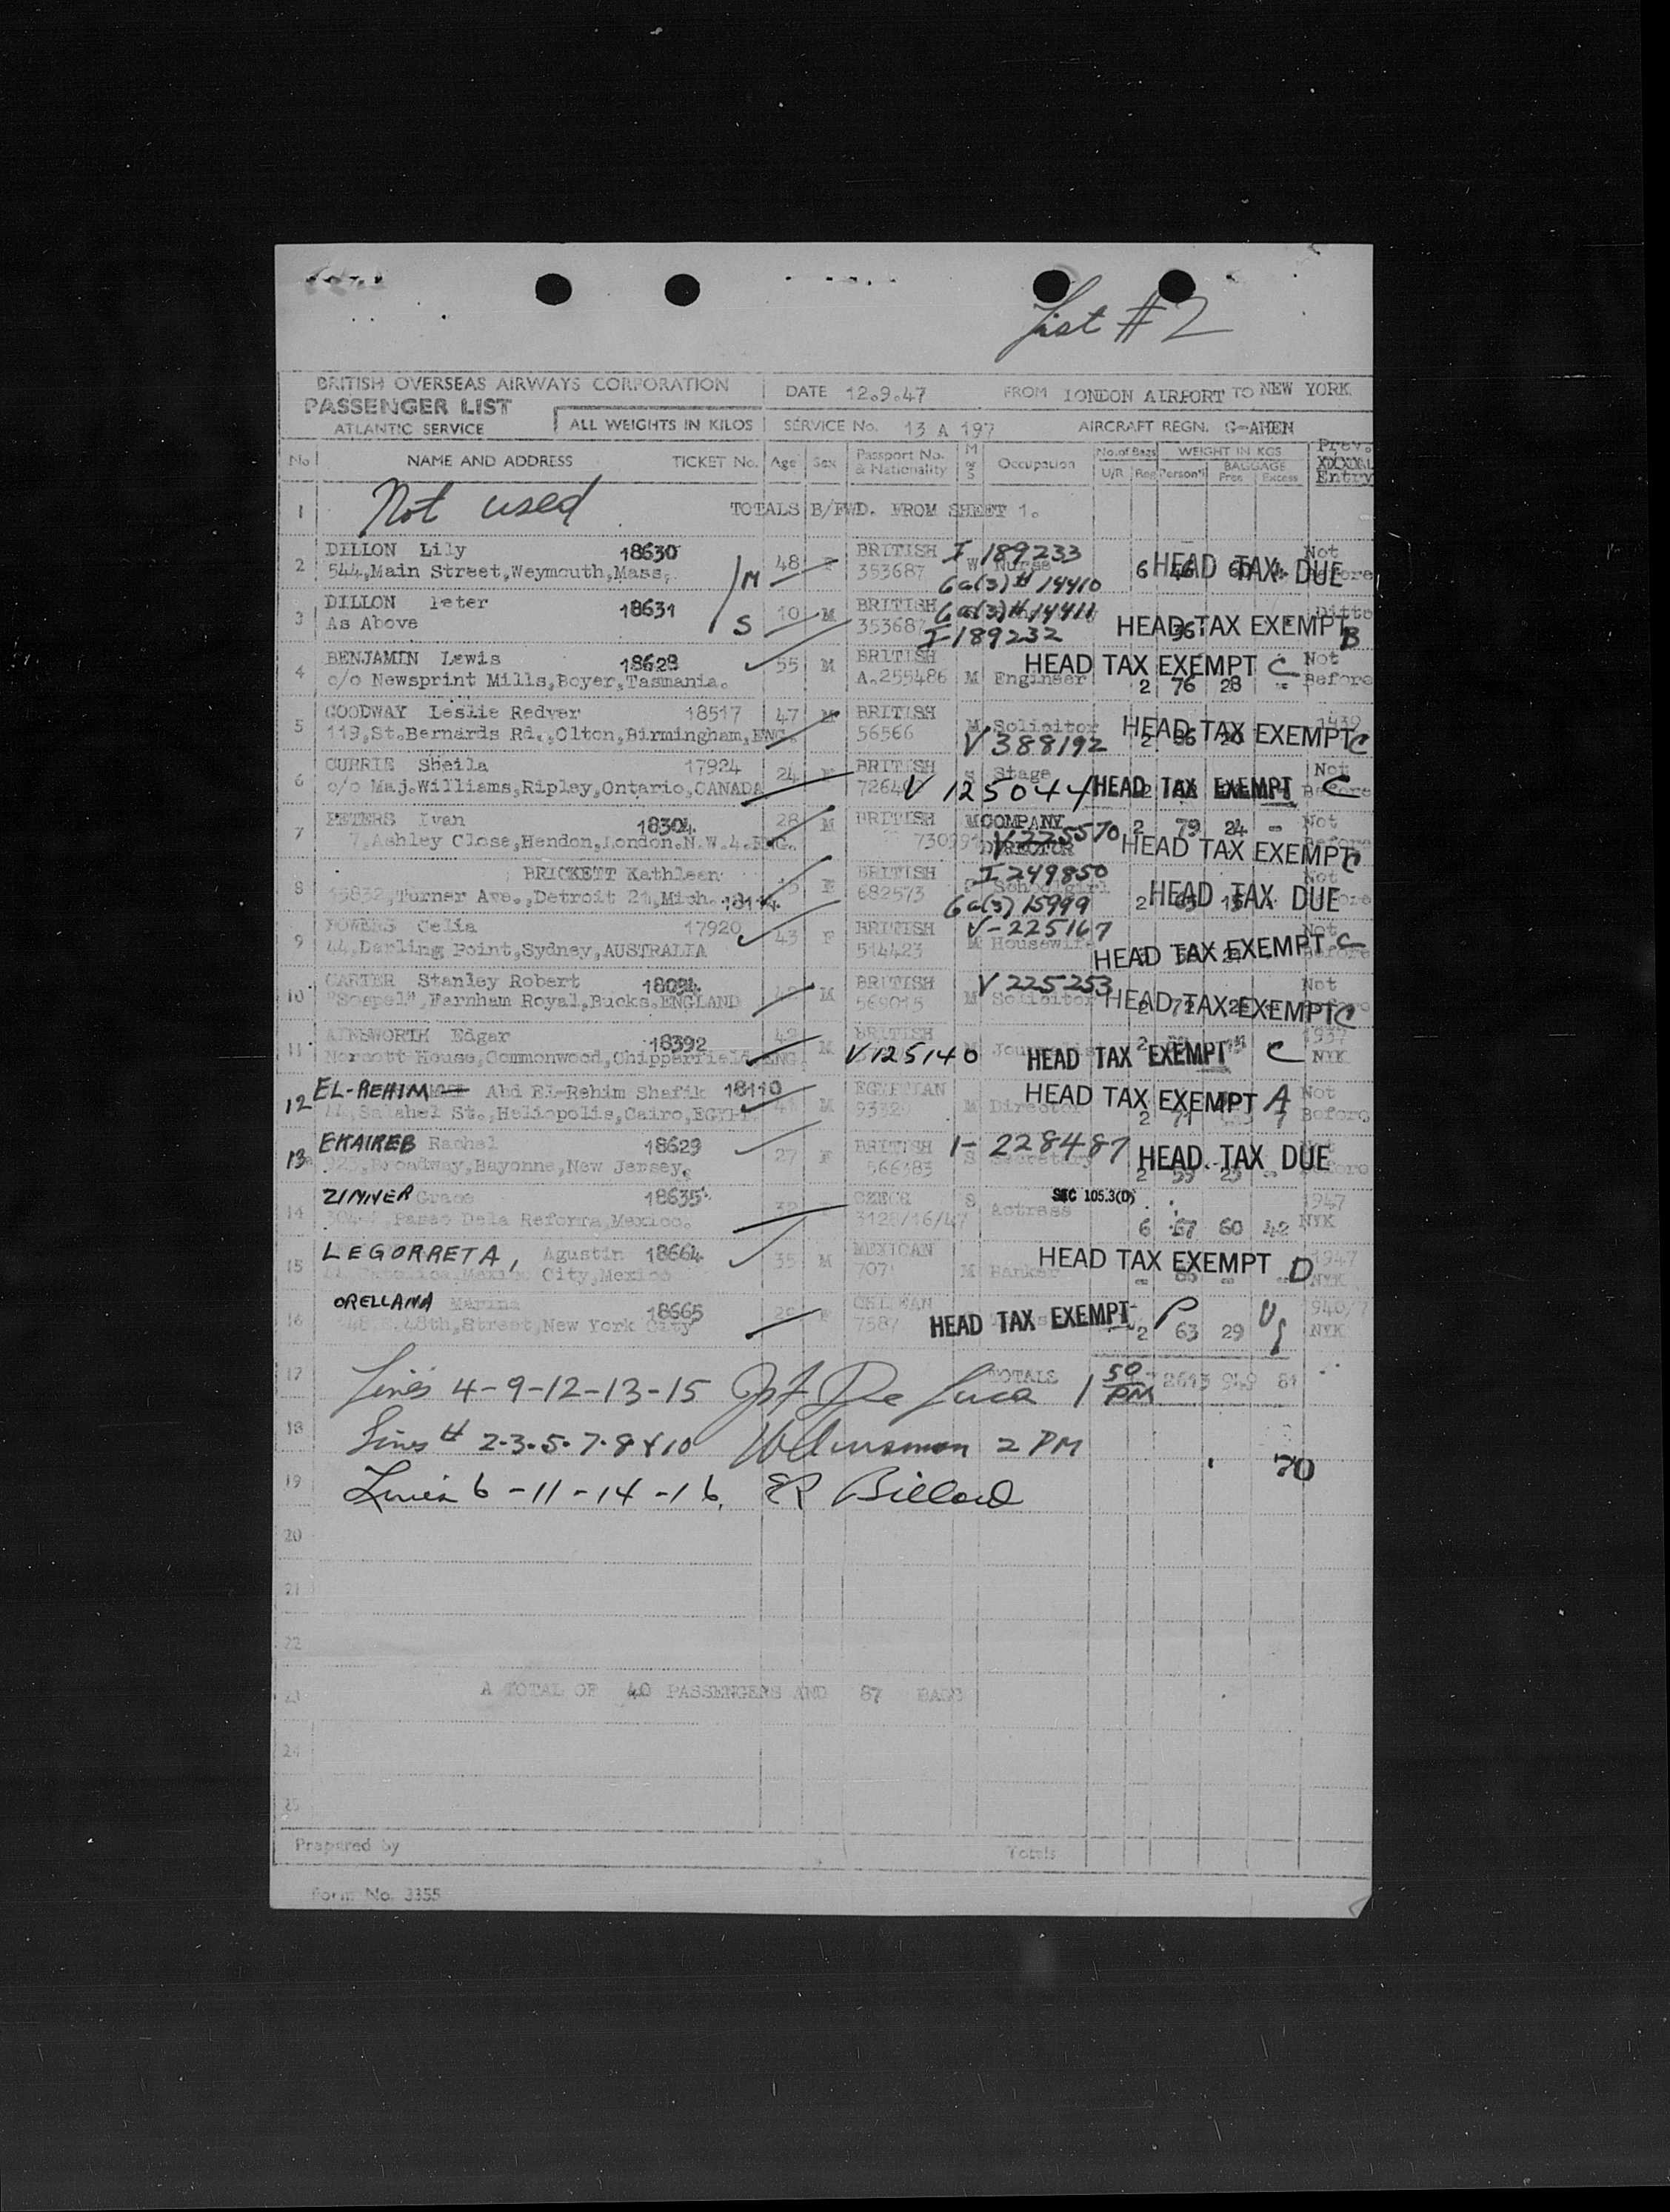 List #2
BRITISH OVERSEAS AIRWAYS CORPORATION DATE 12.9.47 FROM LONDON AIRPORT TO NEW YORK
PASSENGER LIST
ATLANTIC SERVICE ALL WEIGHTS IN KILOS SERVICE No. 13 A 197 AIRCRAFT REGN. G-AHEN
No NAME AND ADDRESS TICKET No. Age Sex Passport No. & Nationality M or S Occupation No. of Bags U/R Reg WEIGHT IN KGS Person'l BAGGAGE Free Excess Prev. Entry
1 Not used TOTALS B/FWD. FROM SHEET 1.
2 DILLON Lily 18630 M 48 F BRITISH I 189233 W Nurse 6 HEAD TAX DUE Not
544,Main Street,Weymouth,Mass, 353687 6a(3)# 14410 Before
3 DILLON Peter 18631 S 10 M BRITISH 6a(3)# 14411 Ditto
As Above 353687 I-189232 HEAD TAX EXEMPT B
4 BENJAMIN Lewis 18628 55 M BRITISH HEAD TAX EXEMPT C Not
c/o Newsprint Mills,Boyer,Tasmania. A.255486 M Engineer 2 76 28 - Before
5 GOODWAY Leslie Redver 18517 47 M BRITISH M Solicitor HEAD TAX EXEMPT C 1939
119,St.Bernards Rd.,Olton,Birmingham,ENG. 56566 V 388192
6 CURRIE Sheila 17924 24 F BRITISH S Stage Not
c/o Maj.Williams,Ripley,Ontario,CANADA V 125044 HEAD TAX EXEMPT C Before
7 PETERS Ivan 18304 28 M BRITISH M COMPANY DIRECTOR 2 79 24 - Not
7,Ashley Close,Hendon,London.N.W.4.ENG. V 225570 HEAD TAX EXEMPT C Before
8 BRICKETT Kathleen F BRITISH I 249850 Schoolgirl Not
15832,Turner Ave.,Detroit 21,Mich. 18114 682573 6a(3) 15999 2 HEAD TAX DUE Before
9 POWERS Celia 17920 43 F BRITISH V-225167 Not
44,Darling Point,Sydney,AUSTRALIA 514423 M Housewife HEAD TAX EXEMPT C Before
10 CARTER Stanley Robert 18094 M BRITISH V 225253 Not
"Sospel",Farnham Royal,Bucks.ENGLAND 569015 M Solicitor HEAD TAX EXEMPT C Before
11 AINSWORTH Edgar 18392 42 M BRITISH 1937
Norcott House,Commonwood,Chipperfield.ENG. V 125140 HEAD TAX EXEMPT C NYK
12 EL-REHIM Abd El-Rehim Shafik 18110 M EGYPTIAN HEAD TAX EXEMPT A Not
Salahel St.,Heliopolis,Cairo,EGYPT M Director 2 71 7 Before
13 EKAIREB Rachel 18629 27 F BRITISH I-228487
925,Broadway,Bayonne,New Jersey. 566183 S Secretary HEAD TAX DUE Before
14 ZINNER Grace 18635 CZECH S Actress SEC 105.3(D) 1947
Paseo Dela Reforma,Mexico. 3128/16/47 6 67 60 42 NYK
15 LEGORRETA, Agustin 18664 35 M MEXICAN HEAD TAX EXEMPT D 1947
City,Mexico 707 M Banker NYK
16 ORELLANA Marina 18665 F HEAD TAX EXEMPT
48th,Street,New York City 758 2 63 29 NYK
17 Lines 4-9-12-13-15 De Luca 1 50 PM TOTALS 949 81
18 Lines # 2-3-5-7-8 & 10 2 PM
19 Lines 6-11-14-16. ER Billard 70
20
21
22
23 A TOTAL OF 40 PASSENGERS AND 87 BAGS
24
25
Prepared by Totals
Form No. 3355